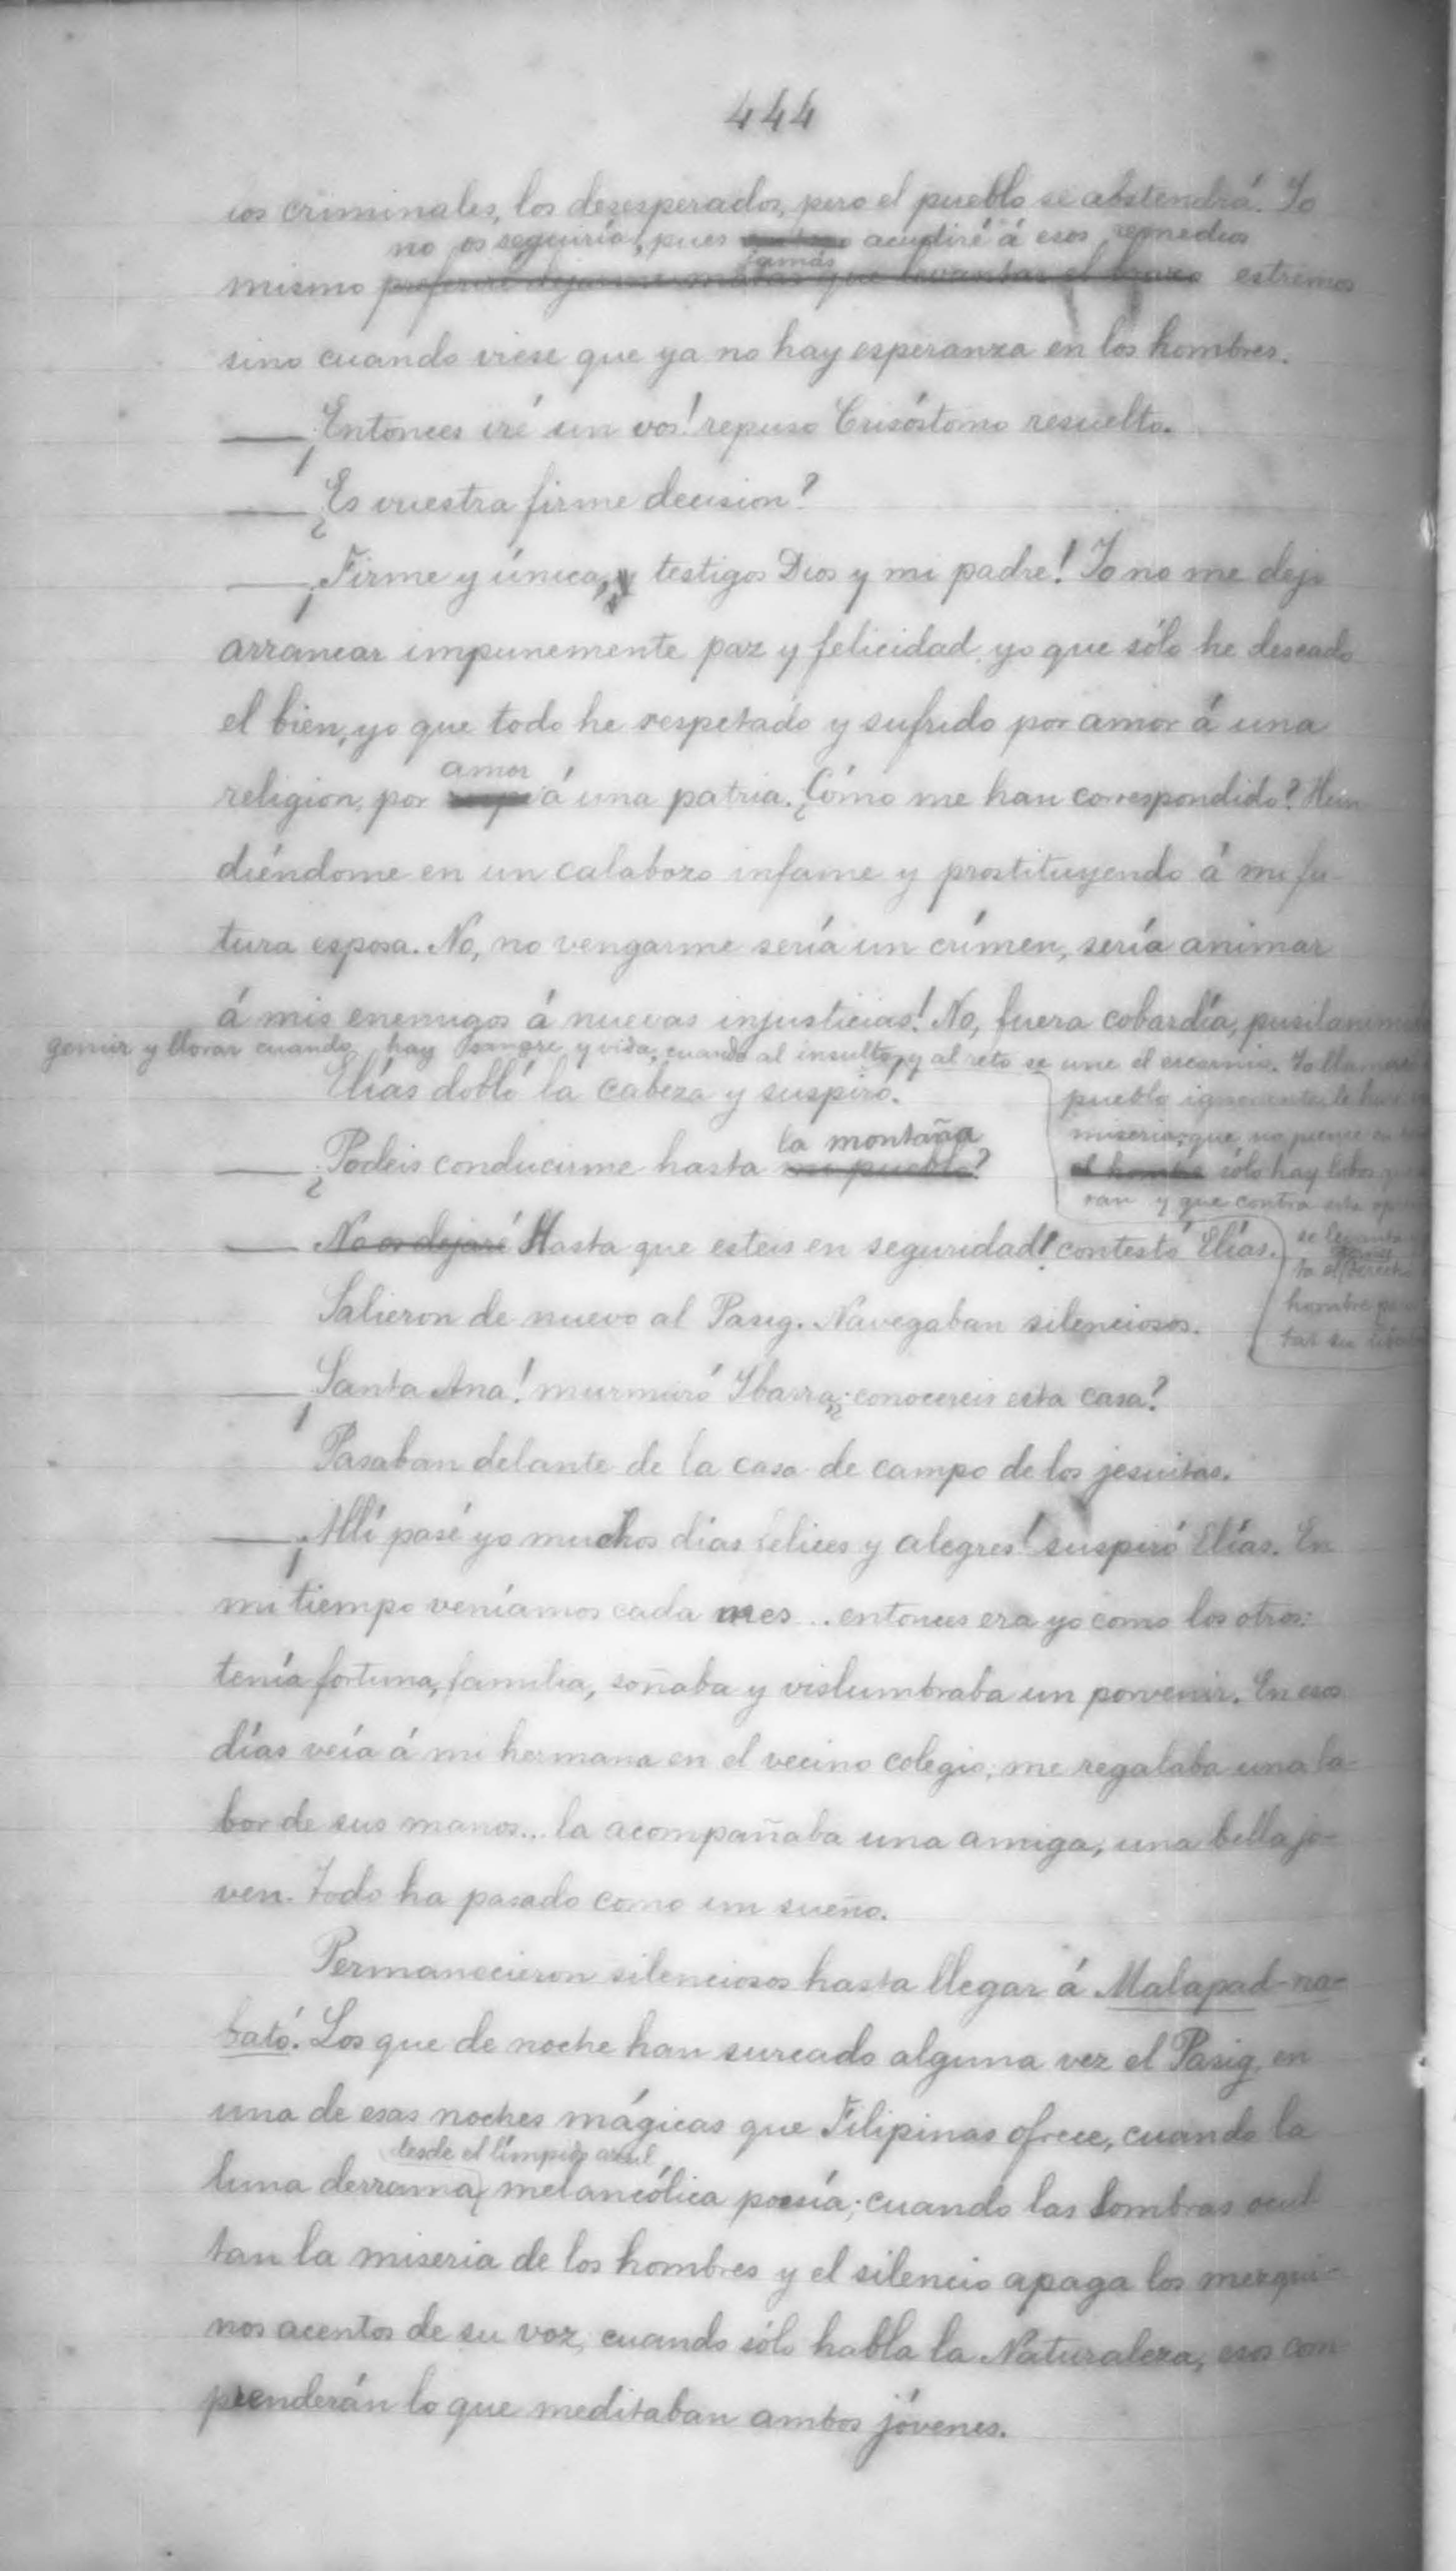 444
los criminales, los desesperados, pero el pueblo se abstendrá. Yo
no os seguiría, pues acudiré á esos remedios
jamás
mismo preferiré dejarme matar que levantar el brazo estremos
sino cuando viese que ya no hay esperanza en los hombres.
— ¡Entonces iré sin vos! repuso Crisóstomo resuelto.
— ¿Es vuestra firme decision?
— ¡Firme y única, y testigos Dios y mi padre! Yo no me dejo
arrancar impunemente paz y felicidad, yo que sólo he deseado
el bien, yo que todo he respetado y sufrido por amor á una
amor
religion, por á una patria. ¿Cómo me han correspondido? Hun
diéndome en un calabozo infame y prostituyendo á mi fu-
tura esposa. No, no vengarme sería un crímen, sería animar
á mis enemigos á nuevas injusticias! No, fuera cobardía,
gemir y llorar cuando hay sangre y vida, cuando al insulto, y al reto se une el escarnio. Yo
Elías dobló la cabeza y suspiró.
pueblo ignorante, le
miseria; que no piense en
la montaña
— ¿Podeis conducirme hasta mi pueblo?
el hombre sólo hay lobos
ran y que contra esta
— No os dejaré Hasta que esteis en seguridad! contestó Elías.
se levanta
to el derecho
Salieron de nuevo al Pasig. Navegaban silenciosos.
hombre
tar su
— ¡Santa Ana! murmuró Ibarra; ¿conocereis esta casa?
Pasaban delante de la casa de campo de los jesuitas.
— ¡Allí pasé yo muchos días felices y alegres! suspiró Elías. En
mi tiempo veníamos cada mes... entonces era yo como los otros:
tenía fortuna, familia, soñaba y vislumbraba un porvenir. En esos
días veía á mi hermana en el vecino colegio; me regalaba una la-
bor de sus manos... la acompañaba una amiga, una bella jo-
ven. Todo ha pasado como un sueño.
Permanecieron silenciosos hasta llegar á Malapad-na-
bató. Los que de noche han surcado alguna vez el Pasig, en
una de esas noches mágicas que Filipinas ofrece, cuando la
desde el límpido azul
luna derrama melancólica poesía; cuando las sombras ocul-
tan la miseria de los hombres y el silencio apaga los mezqui-
nos acentos de su voz; cuando sólo habla la Naturaleza, esos com-
prenderán lo que meditaban ambos jóvenes.